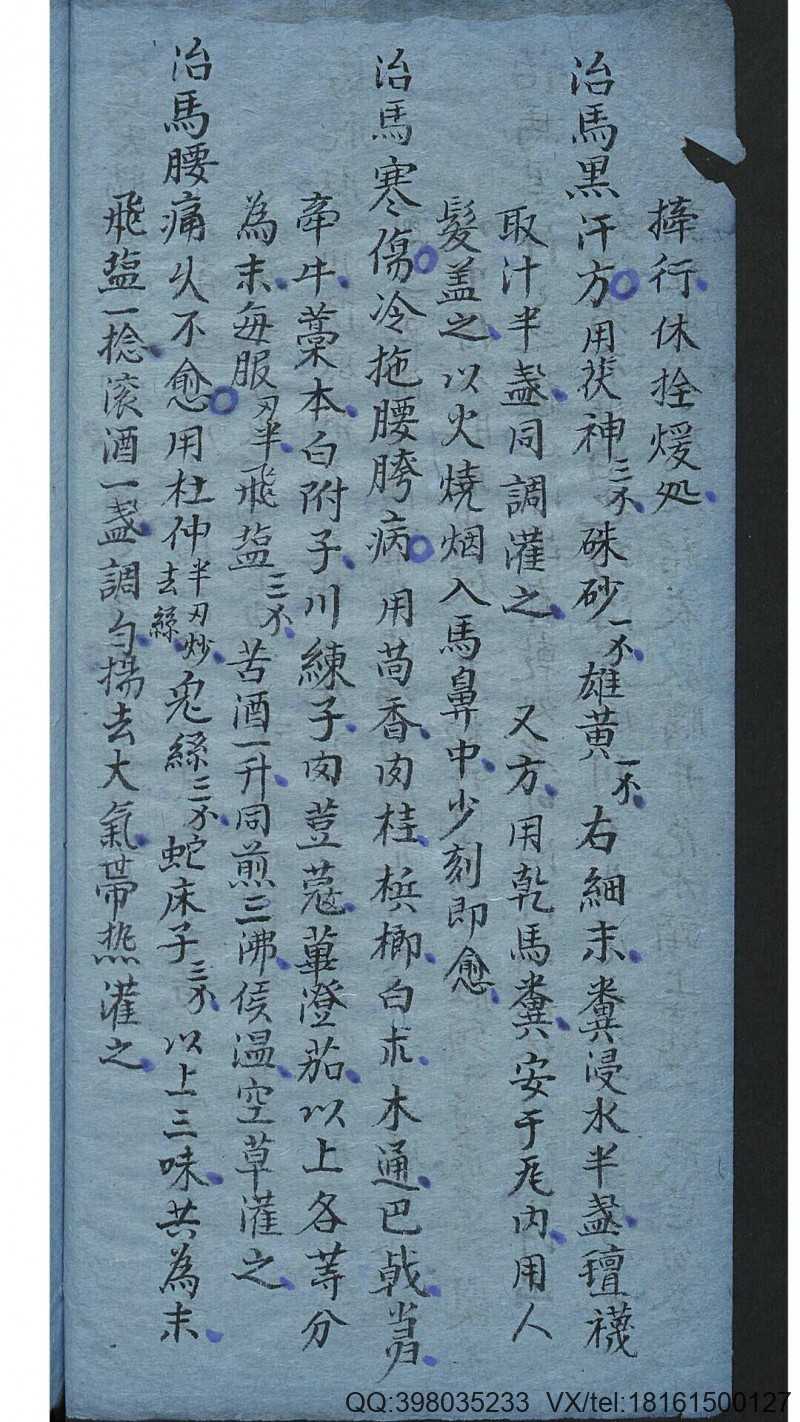 牽行休拴煖处
治馬黑汗方用茯神三不硃砂一不雄黄一不右細末糞浸水半盞氊襪
取汁半盞同調灌之 又方用乾馬糞安于瓦内用人
髮盖之以火燒烟入馬鼻中少刻即愈
治馬寒傷冷拖腰胯病 用茴香肉桂梹榔白朮木通巴戟當归
牵牛藁本白附子川練子肉荳蔻蓽澄茄以上各等分
為末每服刃半飛塩三不苦酒一升同煎三沸候温空草灌之
治馬腰痛久不愈用杜仲半刃炒去絲兎絲三不蛇床子三不以上三味共為末
飛塩一捻滚酒一盞調勻揚去大氣帯热灌之
QQ:398035233 VX/tel:18161500127